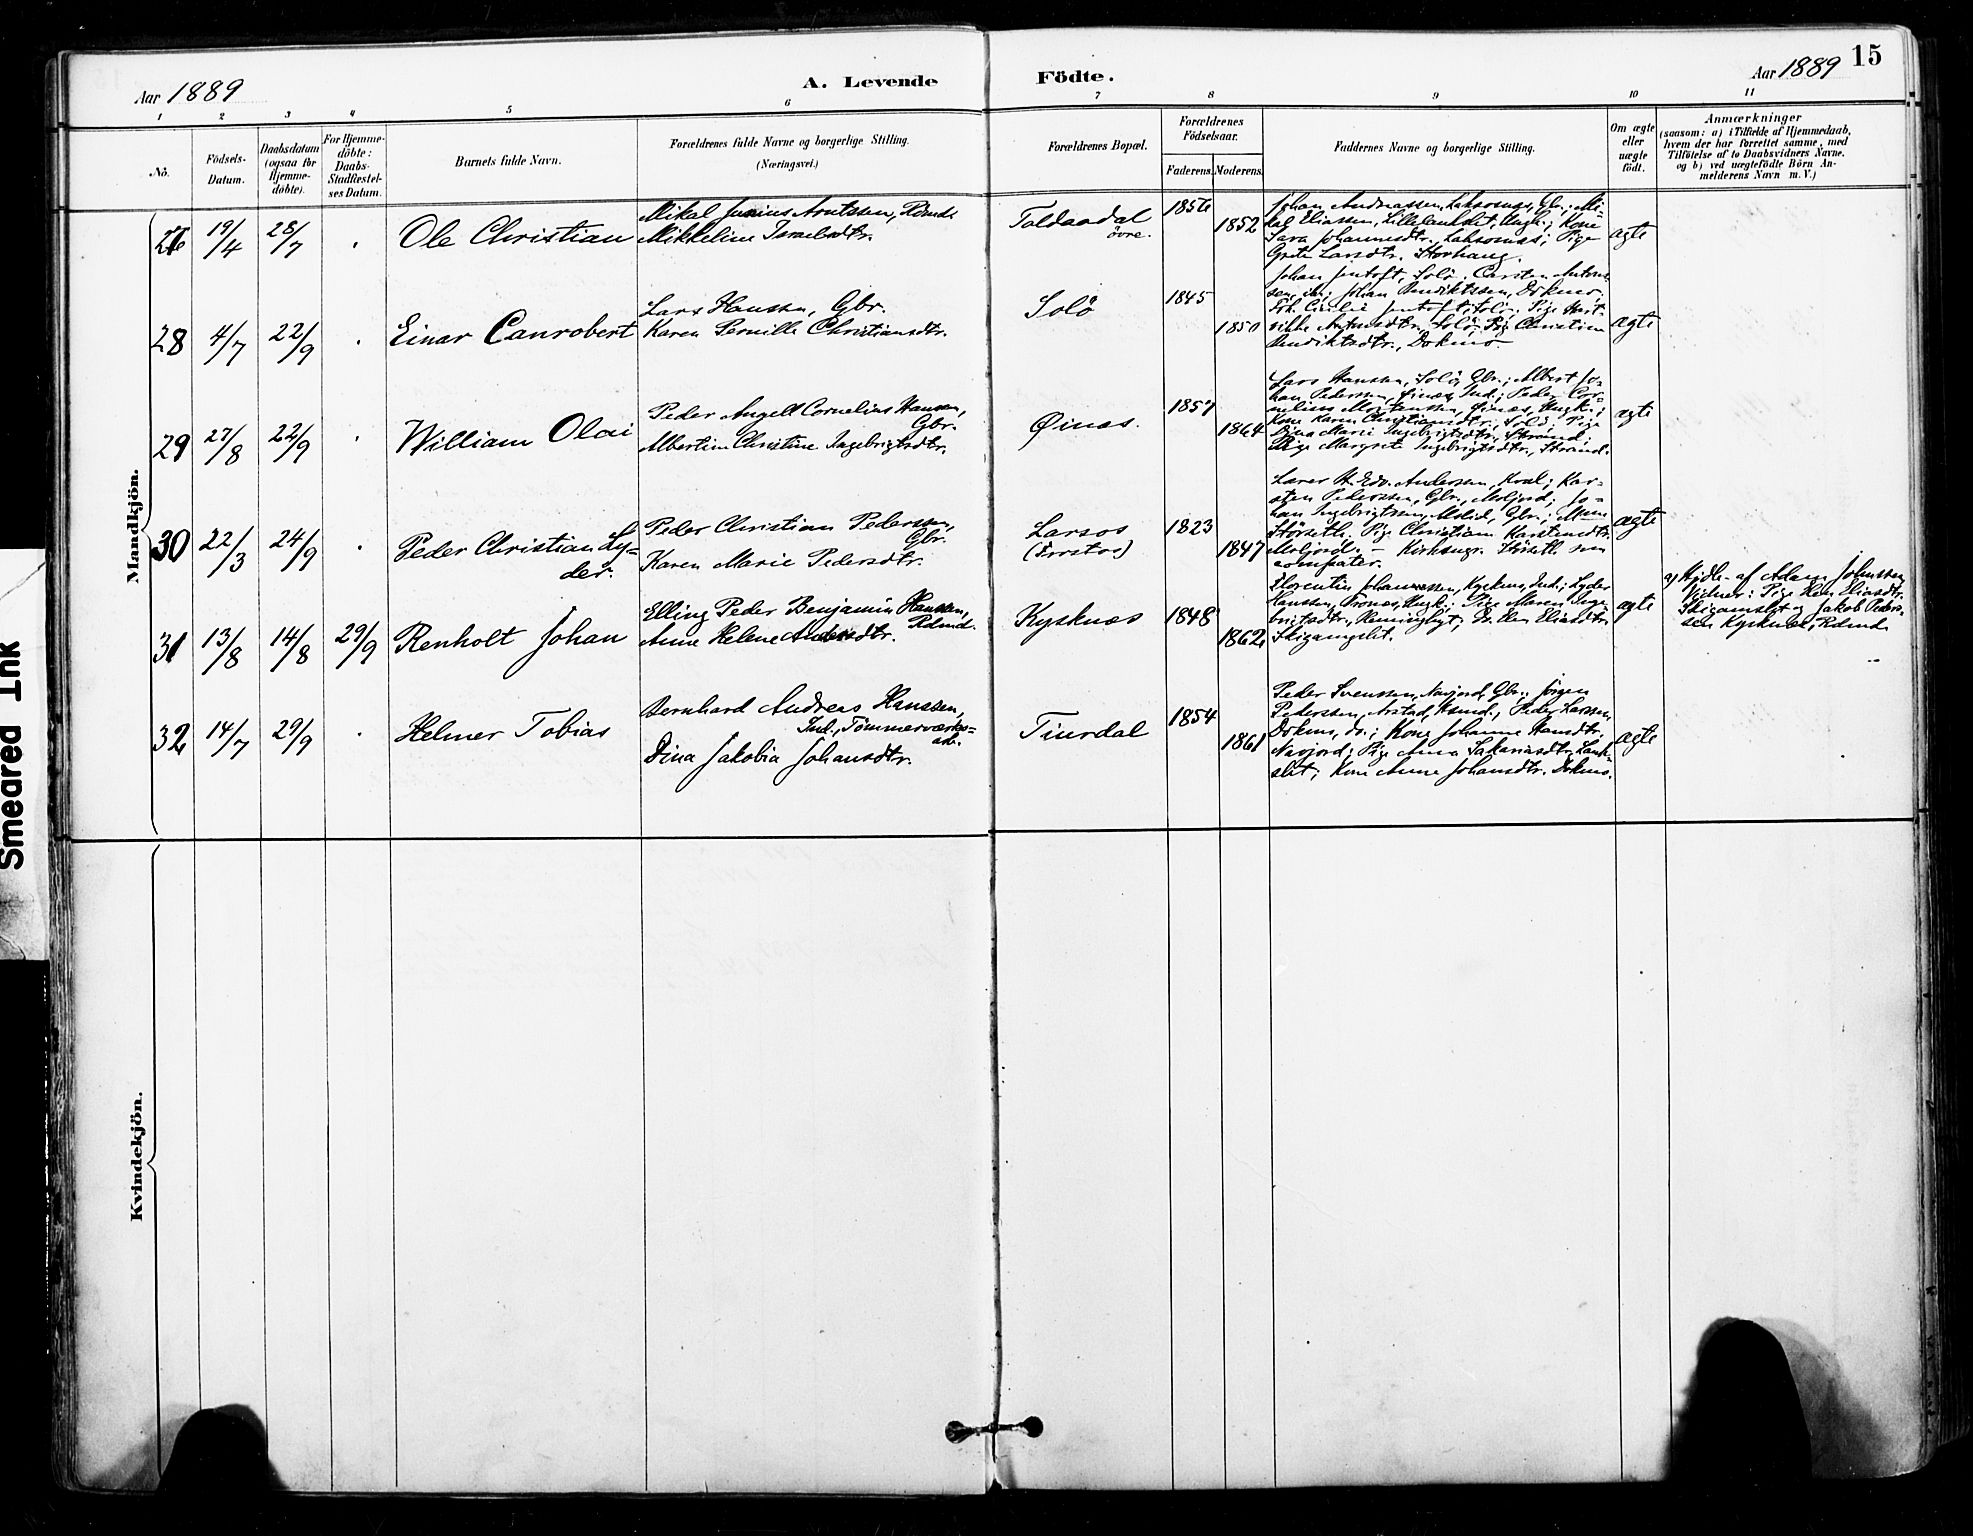 Aar 1889
A. Levende
Födte.
Aar 1889
15
1 2 3 4 5 6 7 8 9 10 11
No.
Födsels-
Datum.
Daabsdatum
(ogsaa for
Hjemme-
döbte).
For Hjemme-
döbte:
Daabs-
Stadfæstel-
ses Datum.
Barnets fulde Navn.
Forældrenes fulde Navne og borgerlige Stilling.
(Næringsvei.)
Forældrenes Bopæl.
Forældrenes
Födselsaar.
Faderens.
Moderens.
Faddernes Navne og borgerlige Stilling.
Om ægte
eller
uægte
födt.
Anmærkninger
(saasom: a) i Tilfælde af Hjemmedaab,
hvem der har forrettet samme, med
Tilföielse af to Daabsvidners Navne,
og b) ved uægtefödte Börn An-
melderens Navn m. V.)
Mandkjön.
19/4
28/7
Ole Christian
Mikal Junius Arntssen,
Mikkeline Israelsdtr.
övre.
1856
1852
Johan Andreassen, Laksosnes, Gbr.; Mi-
kal Eliassen, Ungk.; Kone
Sara Johannesdtr., Laksosnæs; Pige
Grete Larsdtr. Storhaug.
ægte
28
4/7
22/9
Einar Canrobert
Lars Hanssen, Gbr.
Karen Pernille Christiansdtr.
Solö
1845
1850
Johan Jentoft, Solö, Carsten
Johan Bendiktssen, Dokmo,
Cecilie Jentoft, Solö; Pige
Solö; Pige Christine
Bendiktsdtr., Dokmo.
ægte
29
27/8
22/9
William Olai
Peder Angell Cornelius Hansen,
Gbr.
Albertine Christine Ingebrigtsdtr.
Øinæs.
1857
1864
Lars Hanssen, Solö, Gbr.; Albert Jo-
han Pederssen, Øinæs, Ind.; Peder Cor-
nelius Mortenssen, Øinæs, Ungk.;
Kone Karen Christiansdtr., Solö; Pige
Dina Marie Ingebrigtsdtr., Strand;
Pige Margrete Ingebrigtsdtr., Strand.
ægte
30
22/3
24/9
Peder Christian Ly-
der.
Peder Christian Pederssen,
Gbr.
Karen Marie Pedersdtr.
Larsos
1823
1847
Lærer H. Edv. Anderssen, Kar-
sten Pederssen, Gbr., Moljord; Jo-
han Ingebrigtssen, Gbr.;
Störseth; Pige Christiane Karstensdtr.
Moljord. – Kirkesgr. Störseth som
compater.
ægte
31
13/8
14/8
29/9
Renholt Johan
Elling Peder Benjamin Hanssen,
Rdmd.
Anne Helene Andersdtr.
Kysknæs
1848
1862
Florentin Johanessen, Kysknæs, Ind.; Lyder
Hanssen, Ungk.; Pige Maren Inge-
brigtsdtr., Do. Elen Eliasdtr.
ægte
a) Hjdb. af Adam Johnssen
Vidner: Pige Elen Eliasdtr.
og Jakob Peders-
sen Kysknæs, Rdmd.
32
14/7
29/9
Helmer Tobias
Bernhard Andreas Hanssen,
Ind., Tömmerværks-
arb.
Dina Jakobia Johansdtr.
Tinrdal
1854
1861
Peder Svenssen, Navjord, Gbr.; Jörgen
Pederssen, Arstad, Peder Larssen,
Dokmo, do.; Kone Johanne Hansdtr.
Navjord; Pige Anna Sakariasdtr.
Kone Anne Johansdtr. Dokmo.
ægte
Kvindekjön.
Smeared Ink